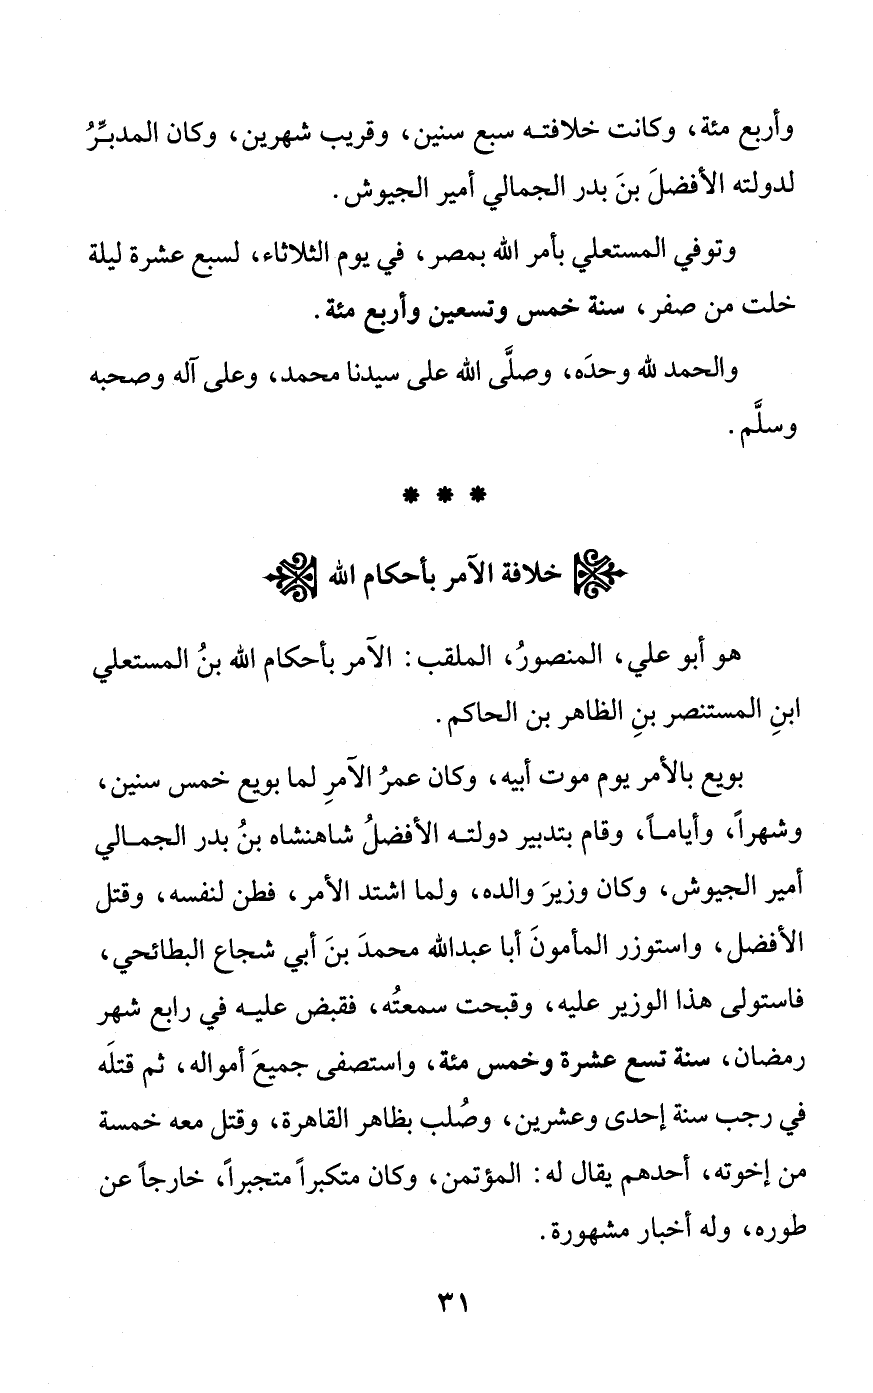 وأربع مئة، وكانت خلافتـه سبع سنين، وقريب شهرين، وكان المدبِّرُ
لدولته الأفضلَ بنَ بدر الجمالي أمير الجيوش.
وتوفي المستعلي بأمر الله بمصر، في يوم الثلاثاء، لسبع عشرة ليلة
خلت من صفر، سنة خمس وتسعين وأربع مئة.
والحمد لله وحدَه، وصلَّى الله على سيدنا محمد، وعلى آله وصحبه
وسلَّم.
* * *
خلافة الآمر بأحكام الله
هو أبو علي، المنصورُ، الملقب: الآمر بأحكام الله بنُ المستعلي
ابنِ المستنصر بنِ الظاهر بن الحاكم.
بويع بالأمر يوم موت أبيه، وكان عمرُ الآمرِ لما بويع خمس سنين،
وشهراً، وأيامـاً، وقام بتدبير دولتـه الأفضلُ شاهنشاه بنُ بدر الجمـالي
أمير الجيوش، وكان وزيرَ والده، ولما اشتد الأمر، فطن لنفسه، وقتل
الأفضل، واستوزر المأمونَ أبا عبدالله محمدَ بنَ أبي شجاع البطائحي،
فاستولى هذا الوزير عليه، وقبحت سمعتُه، فقبض عليـه في رابع شهر
رمضان، سنة تسع عشرة وخمس مئة، واستصفى جميعَ أمواله، ثم قتلَه
في رجب سنة إحدى وعشرين، وصُلب بظاهر القاهرة، وقتل معه خمسة
من إخوته، أحدهم يقال له: المؤتمن، وكان متكبراً متجبراً، خارجاً عن
طوره، وله أخبار مشهورة.
٣١